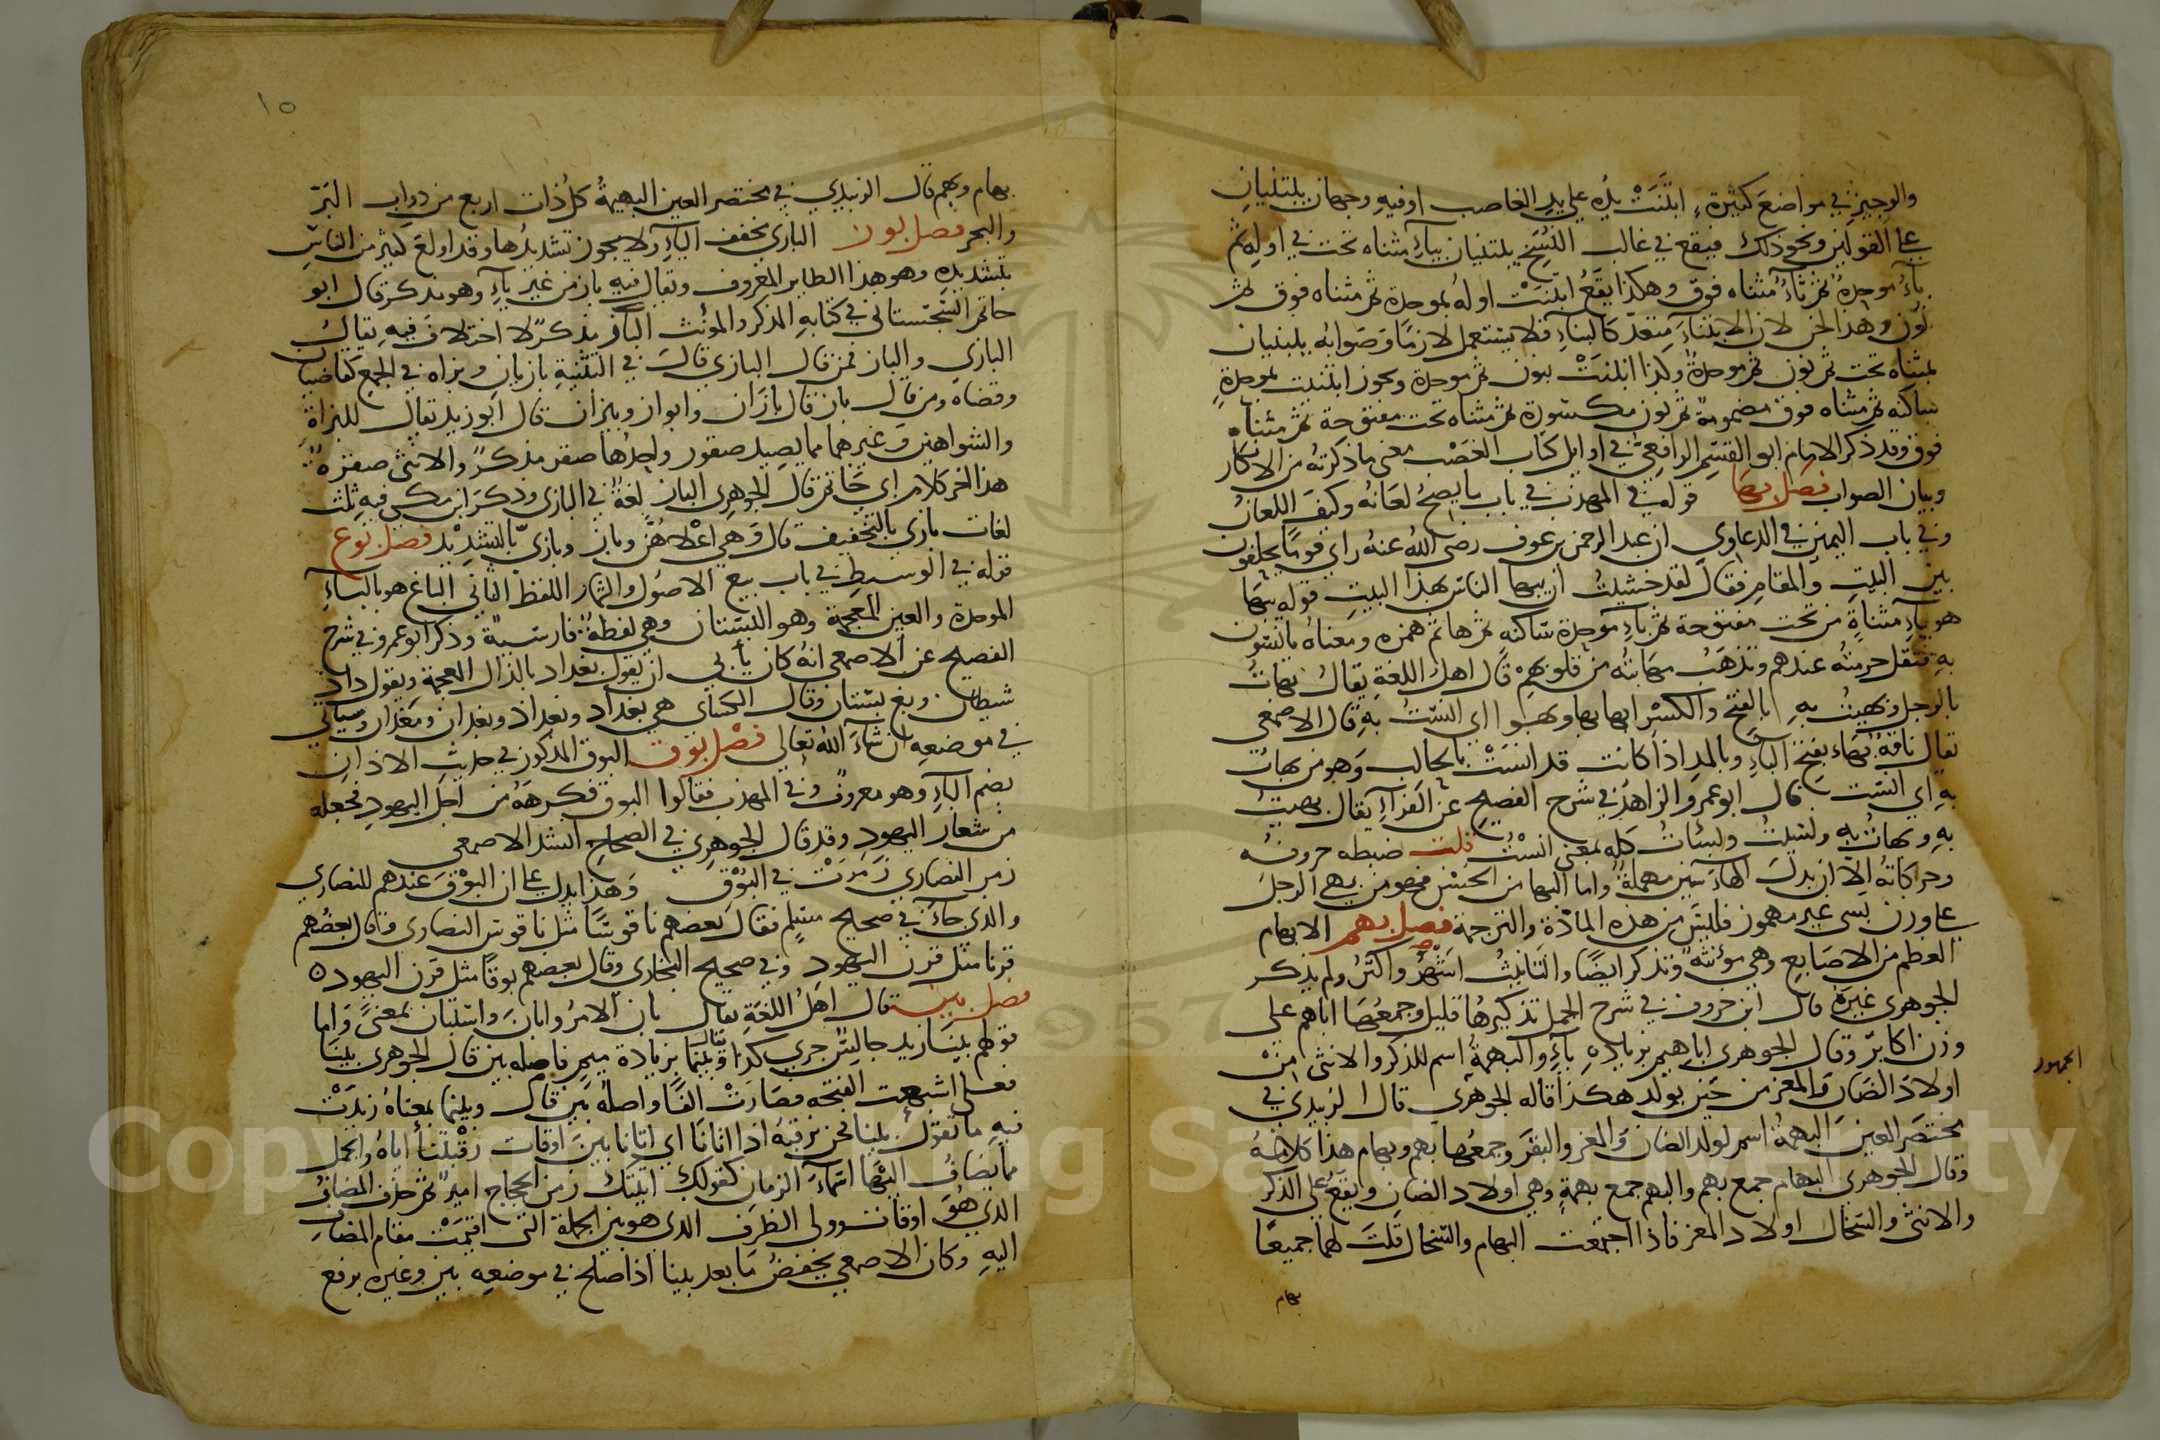 والوجيز في مواضع كثيرة ابتنت يده على يد الغاصب او فيه وجهان يبتنيان
على القولين ونحو ذلك فيقع في غالب النسخ يبتنيان بياء مثناه تحت في اوله ثم
باء موحدة ثم تاء مثناه فوق وهكذا يقع ابتنت اوله بموحدة ثم مثناه فوق ثم
نون وهذا لحن لان الابتناء متعد كالبناء فلا يستعمل لازما وصوابه ينبنيان
بمثناه تحت ثم نون ثم موحدة وكذا انبنت بنون ثم موحدة ويجوز ابتنيت بموحدة
ساكنه ثم مثناه فوق مضمومة ثم نون مكسورة ثم مثناه تحت مفتوحة ثم مثناه
فوق وقد ذكر الامام ابو القسم الرافعي في اوايل كتاب الغصب معنى ما ذكرته من الانكار
وبيان الصواب فصل بها قوله في المهذب في باب ما يصح لعانه وكيف اللعان
وفي باب اليمين في الدعاوي ان عبد الرحمن بن عوف رضي الله عنه راي قوما يحلفون
بين البيت والمقام فقال لقد خشيت ان يبها الناس بهذا البيت قوله يبها
هو بياء مثناة من تحت مفتوحة ثم باء موحدة ساكنه ثم ها ثم همزه ومعناه يانسون
به فتقل حرمته عندهم وتذهب مهابته من قلوبهم قال اهل اللغة يقال بهات
بالرجل وبهيت به بالفتح والكسر ابها بها وبهوا اي انست به قال الاصمعي
يقال ناقة بهاء بفتح الباء وبالمد اذا كانت قد انست بالحالب وهو من بهات
به اي انست قال ابو عمرو الزاهد في شرح الفصيح عن الفراء يقال بهيت
به وبهات به وبسيت وبسات كله بمعنى انست قلت ضبطه حروفه
وحركاته الا ان بدل الهاء سين مهملة واما البها من الحسن فهو من بهي الرجل
على وزن نسي غير مهموز فليس من هذه المادة والترجمة فصل بهم الابهام
العظم من الاصابع وهي مؤنثة وتذكر ايضا والتانيث اشهر واكثر ولم يذكر
الجوهري غيره قال ابن خروف في شرح الجمل تذكيرها قليل وجمعها اباهم على
وزن اكابر وقال الجوهري اباهيم بزيادة ياء والبهمة اسم للذكر والانثى من
الجمهور
اولاد الضان والمعز من حين يولد هكذا قاله الجوهري قال الزبيدي في
مختصر العين البهمة اسم لولد الضان والمعز والبقر وجمعها بهم وبهام هذا كلامه
وقال الجوهري البهام جمع بهم والبهم جمع بهمة وهي اولاد الضان ويقع على الذكر
والانثى والسخال اولاد المعز فاذا اجتمعت البهام والسخال قلت لهما جميعا
بهام
١٥
بهام وبهم قال الزبيدي في مختصر العين البهيمة كل ذات اربع من دواب البر
والبحر فصل بون البازي مخفف الياء ولا يجوز تشديدها وقد اولع كثير من الناس
بتشديده وهو هذا الطاير المعروف ويقال فيه باز من غير ياء وهو مذكر قال ابو
حاتم السجستاني في كتابه المذكر والمونث الباز مذكر لا اختلاف فيه يقال
البازي والباز فمن قال البازي قال في التثنية بازيان وبزاه في الجمع كقاضيان
وقضاه ومن قال باز قال بازان وابواز وبيزان قال ابو زيد يقال للبزاة
والشواهين وغيرهما مما يصيد صقور واحدها صقر مذكر والانثى صقرة
هذا اخر كلام ابي حاتم قال الجوهري الباز لغة في البازي وذكر ابن مكي فيه ثلث
لغات بازي بالتخفيف قال وهي اعلاهن وباز وبازي بالتشديد فصل بوغ
قوله في الوسيط في باب بيع الاصول والثمار اللفظ الثاني الباغ هو بالباء
الموحدة والغين المعجمة وهو البستان وهي لفظة فارسية وذكر ابو عمرو في شرح
الفصيح عن الاصمعي انه كان يابي ان يقول بغداد بالذال المعجمة ويقول داد
شيطان وبغ بستان وقال الكساي هي بغداد وبغداذ وبغدان ومغدان وسياتي
في موضعه ان شاء الله تعالى فصل بوق البوق المذكور في حديث الاذان
بضم الباء وهو معروف وفي المهذب فقالوا البوق فكرهه من اجل اليهود فجعله
من شعار اليهود وقد قال الجوهري في الصحاح انشد الاصمعي
زمر النصارى زمرت في البوق وهذا يدل على ان البوق عندهم للنصارى
والذي جاء في صحيح مسلم فقال بعضهم ناقوسا مثل ناقوس النصارى وقال بعضهم
قرنا مثل قرن اليهود وفي صحيح البخاري وقال بعضهم بوقا مثل قرن اليهود ه
فصل بين قال اهل اللغة يقال بان الامر وابان واستبان بمعنى واما
قولهم بينا زيد جالس جري كذا وبينما بزيادة ميم فاصله بين قال الجوهري بينا
فعلى اشبعت الفتحه فصارت الفا واصله بين قال وبينما بمعناه زيدت
فيه ما تقول بينا نحن نرقبه اذا اتانا اي اتانا بين اوقات رقبتنا اياه والجمل
مما يضاف اليها اسماء الزمان كقولك اتيتك زمن الحجاج امير ثم حذف المضاف
الذي هو اوقات وولي الظرف الذي هو بين الجملة التي اقيمت مقام المضاف
اليه وكان الاصمعي يخفض ما بعد بينا اذا صلح في موضعه بين وغيره يرفع
Copyright © King Saud University
1957